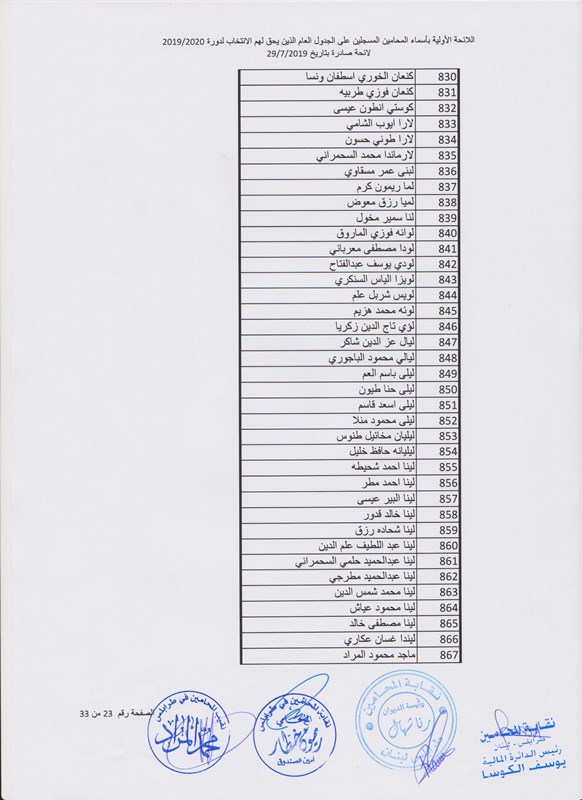 اللائحة الأولية بأسماء المحامين المسجلين على الجدول العام الذين يحق لهم الانتخاب لدورة 2019/2020
لائحة صادرة بتاريخ 29/7/2019
830 كنعان الخوري اسطفان ونسا
831 كنعان فوزي طربيه
832 كوستي انطون عيسى
833 لارا ايوب الشامي
834 لارا طوني حسون
835 لارماندا محمد السحمراني
836 لبنى عمر مسقاوي
837 لما ريمون كرم
838 لميا رزق معوض
839 لنا سمير مخول
840 لوانه فوزي الماروق
841 لودا مصطفى معرباني
842 لودي يوسف عبدالفتاح
843 لويزا الياس السنكري
844 لويس شربل علم
845 لونه محمد هزيم
846 لؤي تاج الدين زكريا
847 ليال عز الدين شاكر
848 ليالي محمود الباجوري
849 ليلى باسم العم
850 ليلى حنا طيون
851 ليلى اسعد قاسم
852 ليلى محمود منلا
853 ليليان مخائيل طنوس
854 ليليانه حافظ خليل
855 لينا احمد شحيطه
856 لينا احمد مطر
857 لينا البير عيسى
858 لينا خالد قدور
859 لينا شحاده رزق
860 لينا عبد اللطيف علم الدين
861 لينا عبدالحميد حلمي السحمراني
862 لينا عبدالحميد مطرجي
863 لينا محمد شمس الدين
864 لينا محمود عياش
865 لينا مصطفى خالد
866 ليندا غسان عكاري
867 ماجد محمود المراد
نقابة المحامين
طرابلس - لبنان
رئيس الدائرة المالية
يوسف الكوسا
نقابة المحامين
رئيسة الديوان
لبنان
نقابة المحامين في طرابلس
المحامي
ريمون خطار
أمين الصندوق
نقيب المحامين في طرابلس
محمد المراد
الصفحة رقم 23 من 33